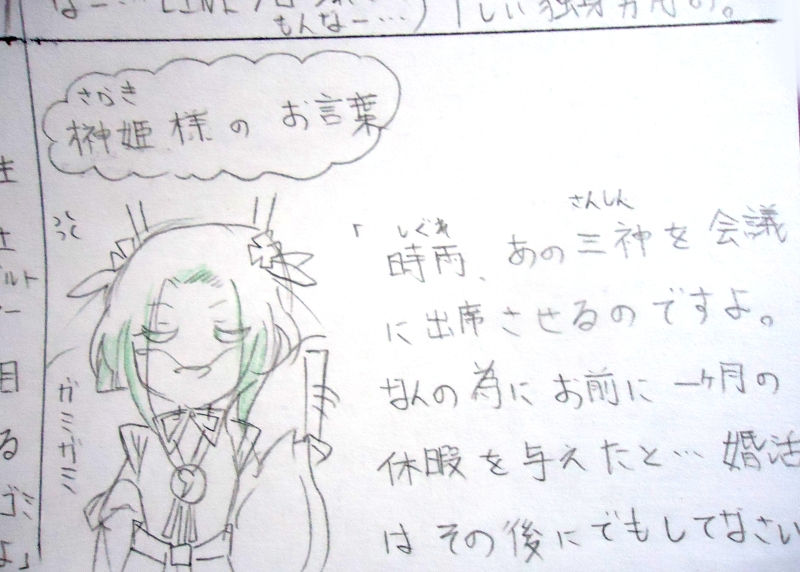 なー… LINE
もんなー…)
しい独身男の。
さかき
榊姫様のお言葉
しぐれ
さんしん
「時雨、あの三神を会議
に出席させるのですよ。
なんの為にお前に一ヶ月の
休暇を与えたと…婚活
はその後にでもしてなさい
ガミガミ
生
ルト
ー
目
る
ゴミ
よ」